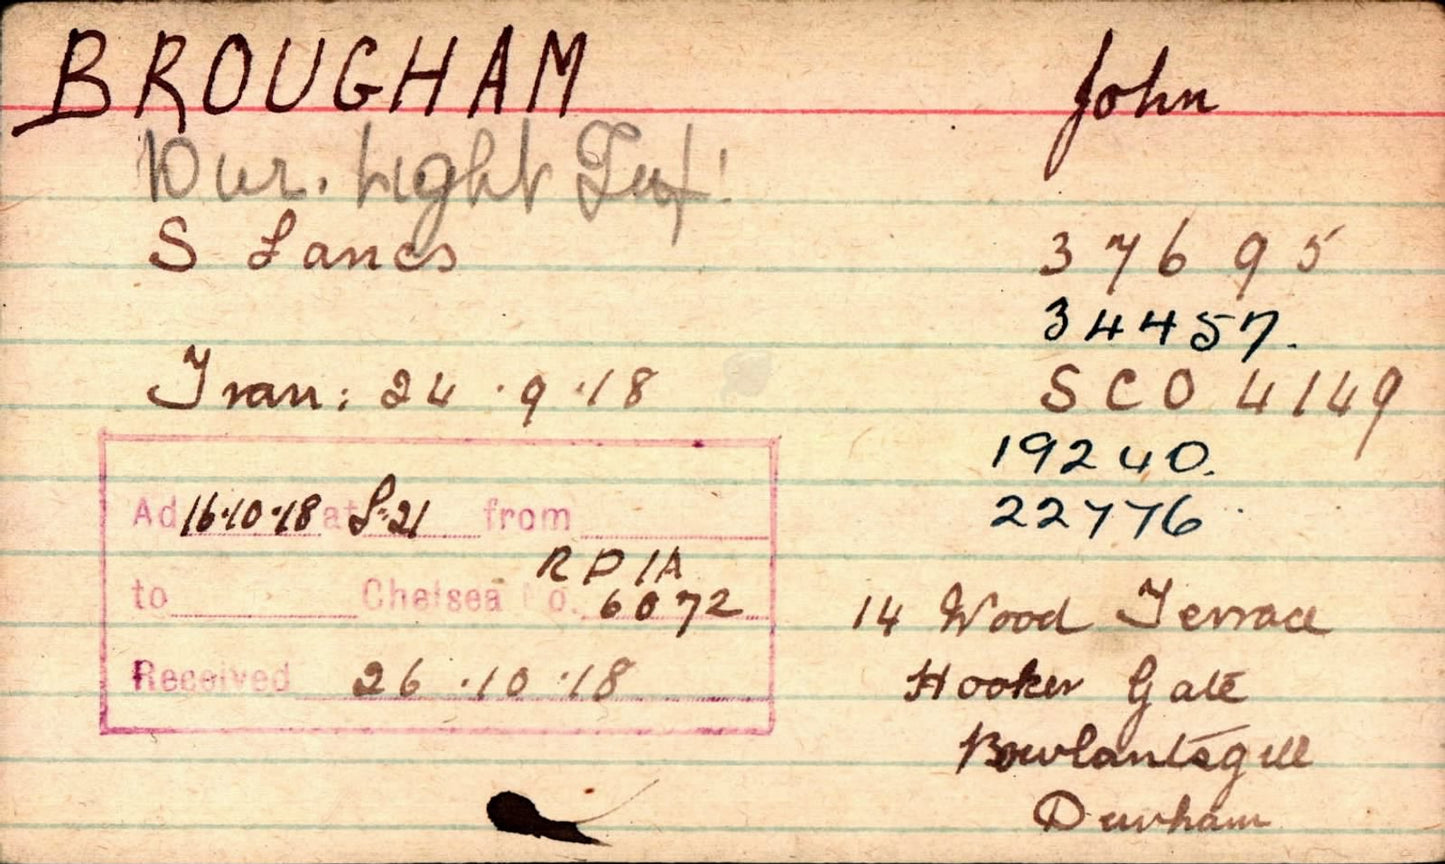 BROUGHAM John
Dur. Light Inf!
S Lancs 37695
34457.
Tran: 24.9.18 SCO 4149
19240.
22776
Ad 16.10.18 at S.21 from
RP 1A
to Chelsea No. 6072
Received 26.10.18
14 Wood Terrace
Hooker Gate
Rowlantsgill
Durham